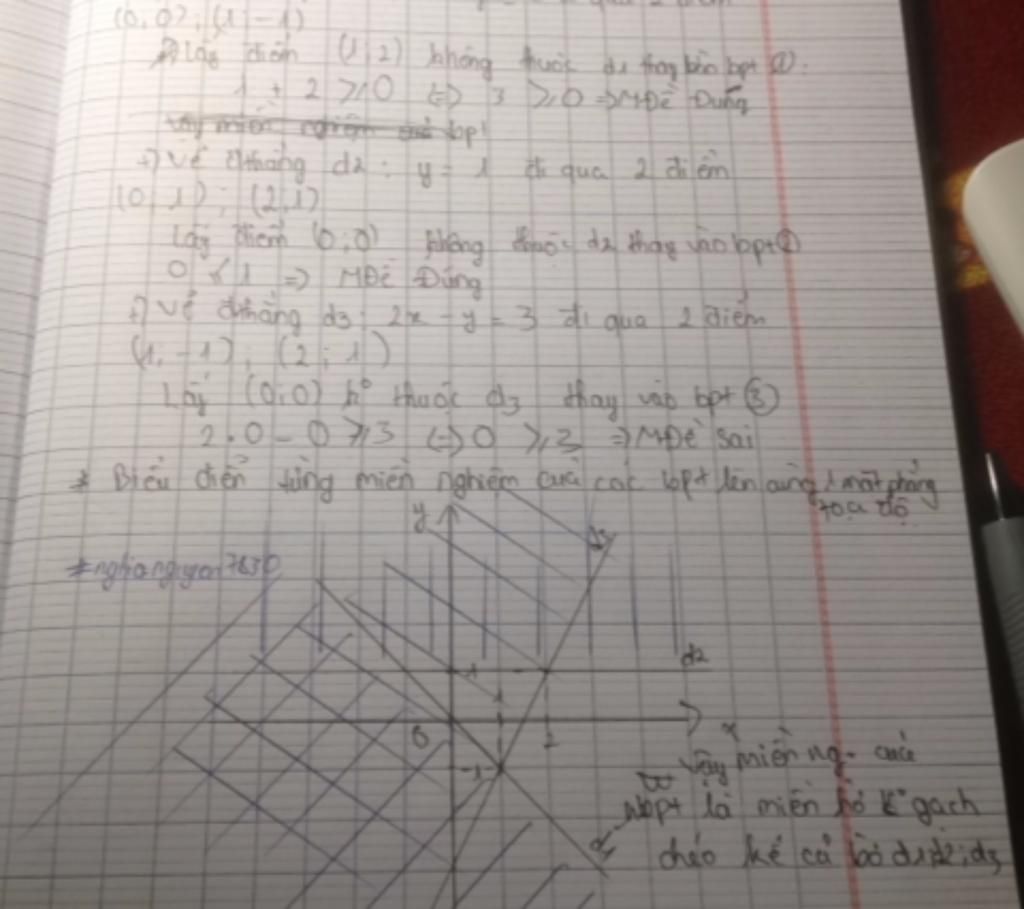 (0; 0); (1; -1)
+) Lấy điểm (1; 2) không thuộc d1 thay vào bpt ①:
1 + 2 ⩾ 0 <=> 3 ⩾ 0 => MĐề Đúng
Vậy miền nghiệm bpt
+) Vẽ đthẳng d2: y = 1 đi qua 2 điểm
(0; 1); (2; 1)
Lấy điểm (0; 0) không thuộc d2 thay vào bpt ②
0 < 1 => MĐề Đúng
+) Vẽ đthẳng d3: 2x - y = 3 đi qua 2 điểm
(1, -1); (2; 1)
Lấy (0; 0) k° thuộc d3 thay vào bpt ③
2.0 - 0 ⩾ 3 <=> 0 ⩾ 3 => MĐề sai
* Biểu diễn từng miền nghiệm của các bpt lên cùng 1 mặt phẳng
toạ độ
y
d3
d2
1
1
0
2
x
-1
d1
Vậy miền ng. của
hbpt là miền k° gạch
chéo kể cả bờ d1; d2; d3